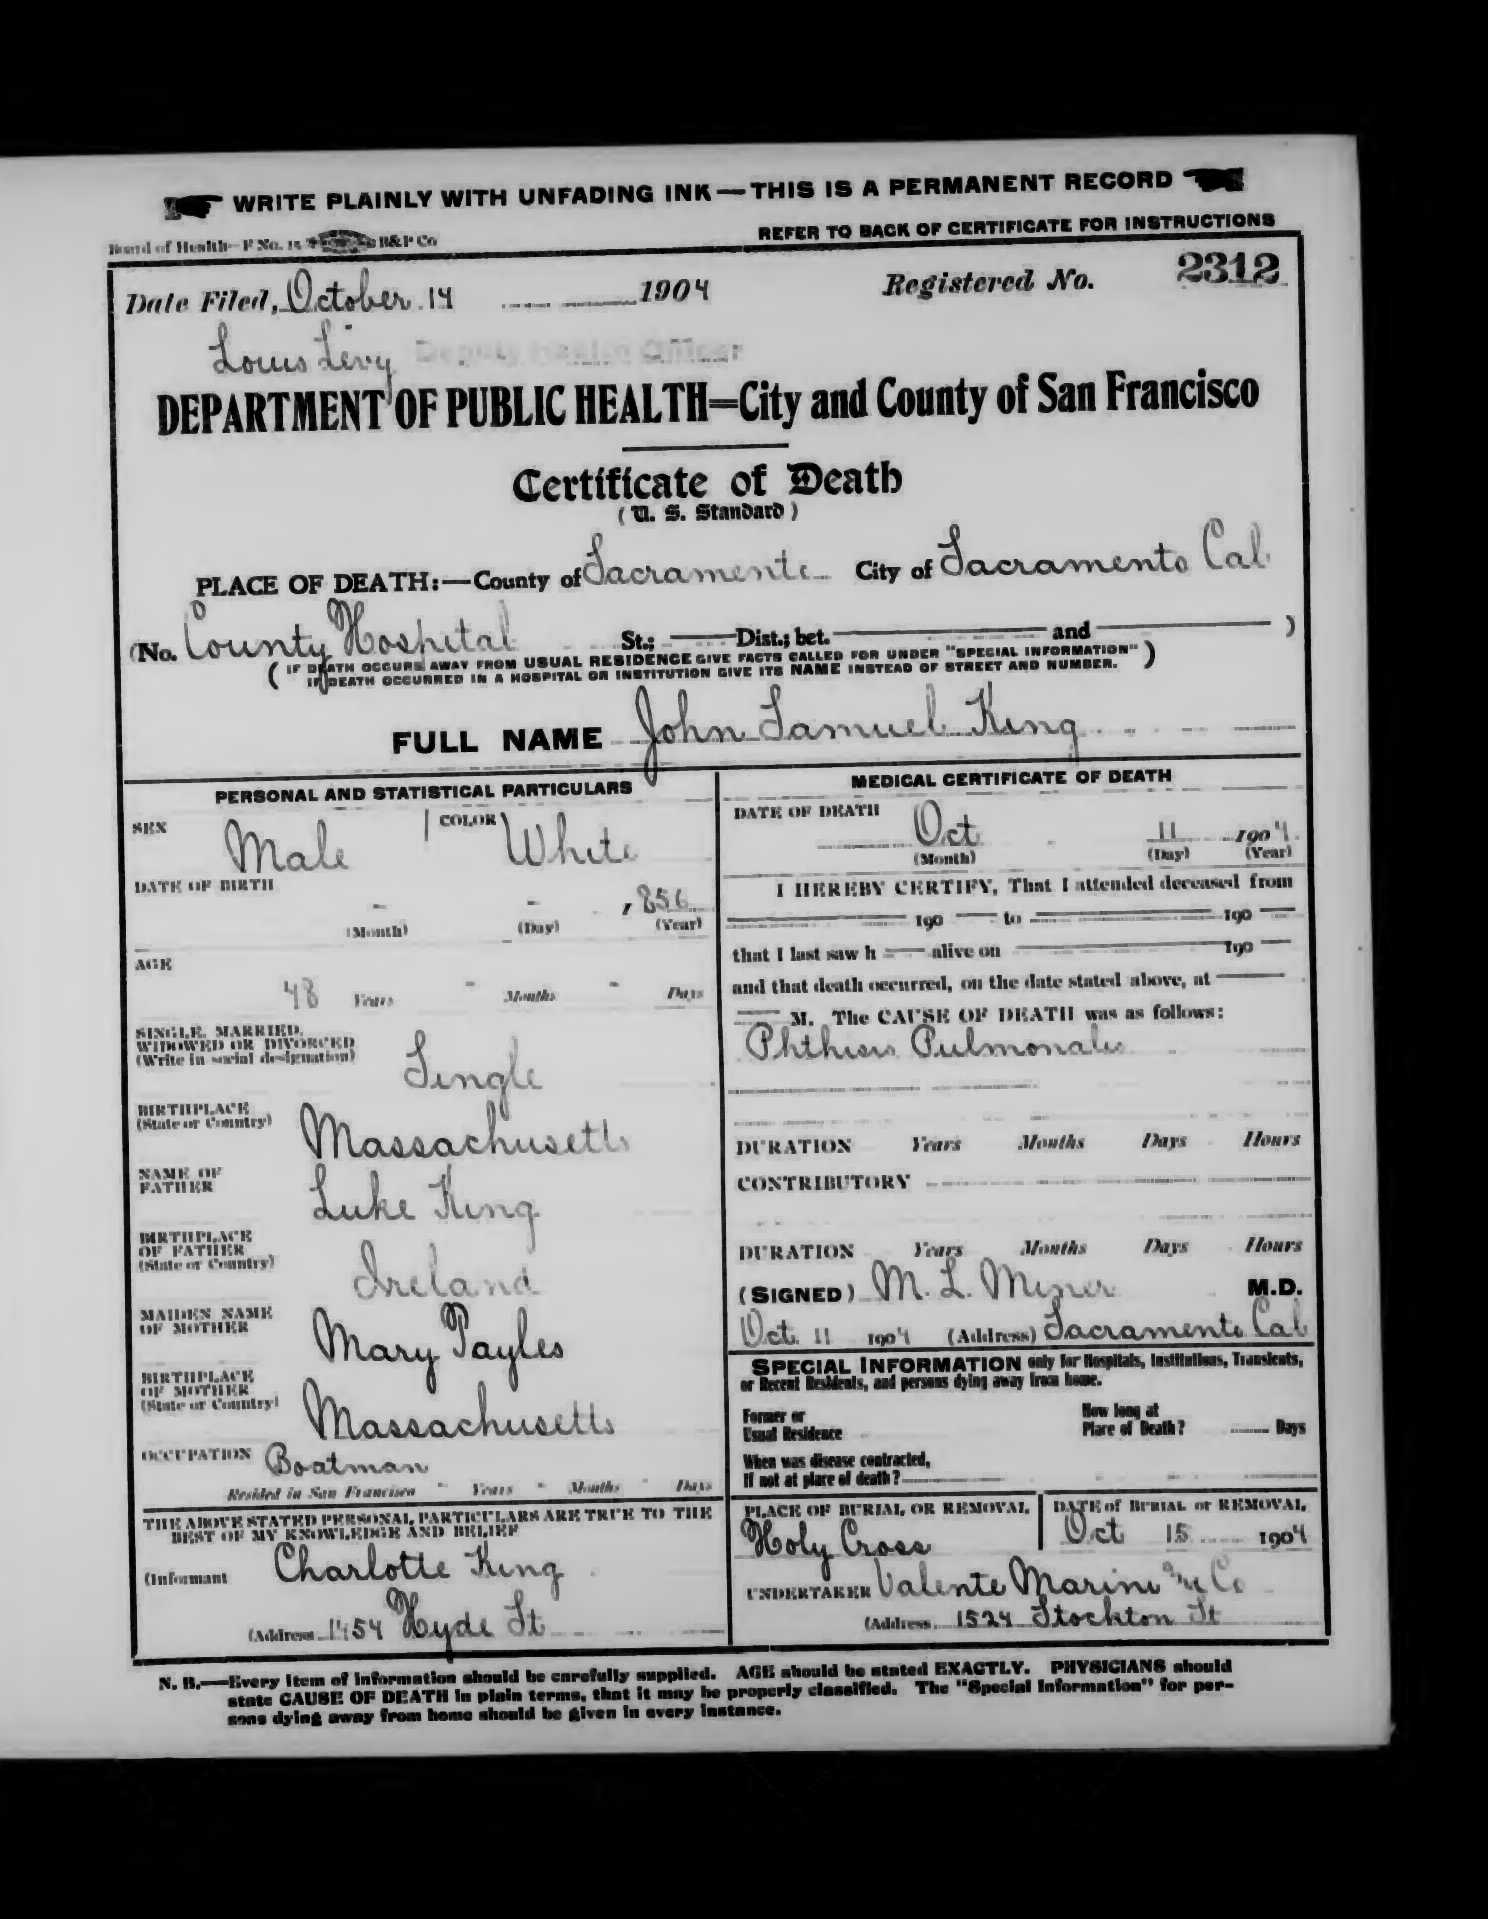 WRITE PLAINLY WITH UNFADING INK—THIS IS A PERMANENT RECORD
Board of Health—F No. 15 B&P Co
REFER TO BACK OF CERTIFICATE FOR INSTRUCTIONS
Date Filed, October 14 1904 Registered No. 2312
Louis Levy Deputy Health Officer
DEPARTMENT OF PUBLIC HEALTH=City and County of San Francisco
Certificate of Death
(U. S. Standard)
PLACE OF DEATH:—County of Sacramento City of Sacramento Cal
(No. County Hospital St.; Dist.; bet. and )
(IF DEATH OCCURS AWAY FROM USUAL RESIDENCE GIVE FACTS CALLED FOR UNDER "SPECIAL INFORMATION"
IF DEATH OCCURRED IN A HOSPITAL OR INSTITUTION GIVE ITS NAME INSTEAD OF STREET AND NUMBER.)
FULL NAME John Samuel King
PERSONAL AND STATISTICAL PARTICULARS
SEX Male COLOR White
DATE OF BIRTH - - , 856
(Month) (Day) (Year)
AGE
48 Years - Months - Days
SINGLE, MARRIED,
WIDOWED OR DIVORCED
(Write in social designation) Single
BIRTHPLACE
(State or Country) Massachusetts
NAME OF
FATHER Luke King
BIRTHPLACE
OF FATHER
(State or Country) Ireland
MAIDEN NAME
OF MOTHER Mary Tayles
BIRTHPLACE
OF MOTHER
(State or Country) Massachusetts
OCCUPATION Boatman
Resided in San Francisco - Years - Months - Days
THE ABOVE STATED PERSONAL PARTICULARS ARE TRUE TO THE
BEST OF MY KNOWLEDGE AND BELIEF
(Informant Charlotte King
(Address 1454 Hyde St
MEDICAL CERTIFICATE OF DEATH
DATE OF DEATH Oct 11 1904
(Month) (Day) (Year)
I HEREBY CERTIFY, That I attended deceased from
190 to 190
that I last saw h alive on 190
and that death occurred, on the date stated above, at
M. The CAUSE OF DEATH was as follows:
Phthisis Pulmonalis
DURATION Years Months Days Hours
CONTRIBUTORY
DURATION Years Months Days Hours
(SIGNED) M. L. Miner M.D.
Oct. 11 1904 (Address) Sacramento Cal
SPECIAL INFORMATION only for Hospitals, Institutions, Transients,
or Recent Residents, and persons dying away from home.
Former or
Usual Residence
How long at
Place of Death? Days
When was disease contracted,
If not at place of death?
PLACE OF BURIAL OR REMOVAL
Holy Cross
DATE of BURIAL or REMOVAL
Oct 15 1904
UNDERTAKER Valente Marini & Co
(Address 1524 Stockton St
N. B.—Every item of information should be carefully supplied. AGE should be stated EXACTLY. PHYSICIANS should
state CAUSE OF DEATH in plain terms, that it may be properly classified. The "Special Information" for per-
sons dying away from home should be given in every instance.